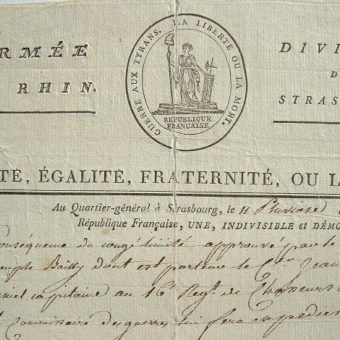 RMÉE
RHIN.
GUERRE AUX TYRANS. LA LIBERTE OU LA MORT.
RÉPUBLIQUE
FRANÇAISE
DIVI
D
STRAS
TE, ÉGALITÉ, FRATERNITÉ, OU LA
Au Quartier-général à Strasbourg, le 11 Pluviose
République Française, UNE, INDIVISIBLE et DÉMO
onséquence du congé limité approuvé par le
Bailly dont est porteur le Cen Jean
capitaine au 16e Regt de Chasseurs
Commissaire des guerres lui fera expédier